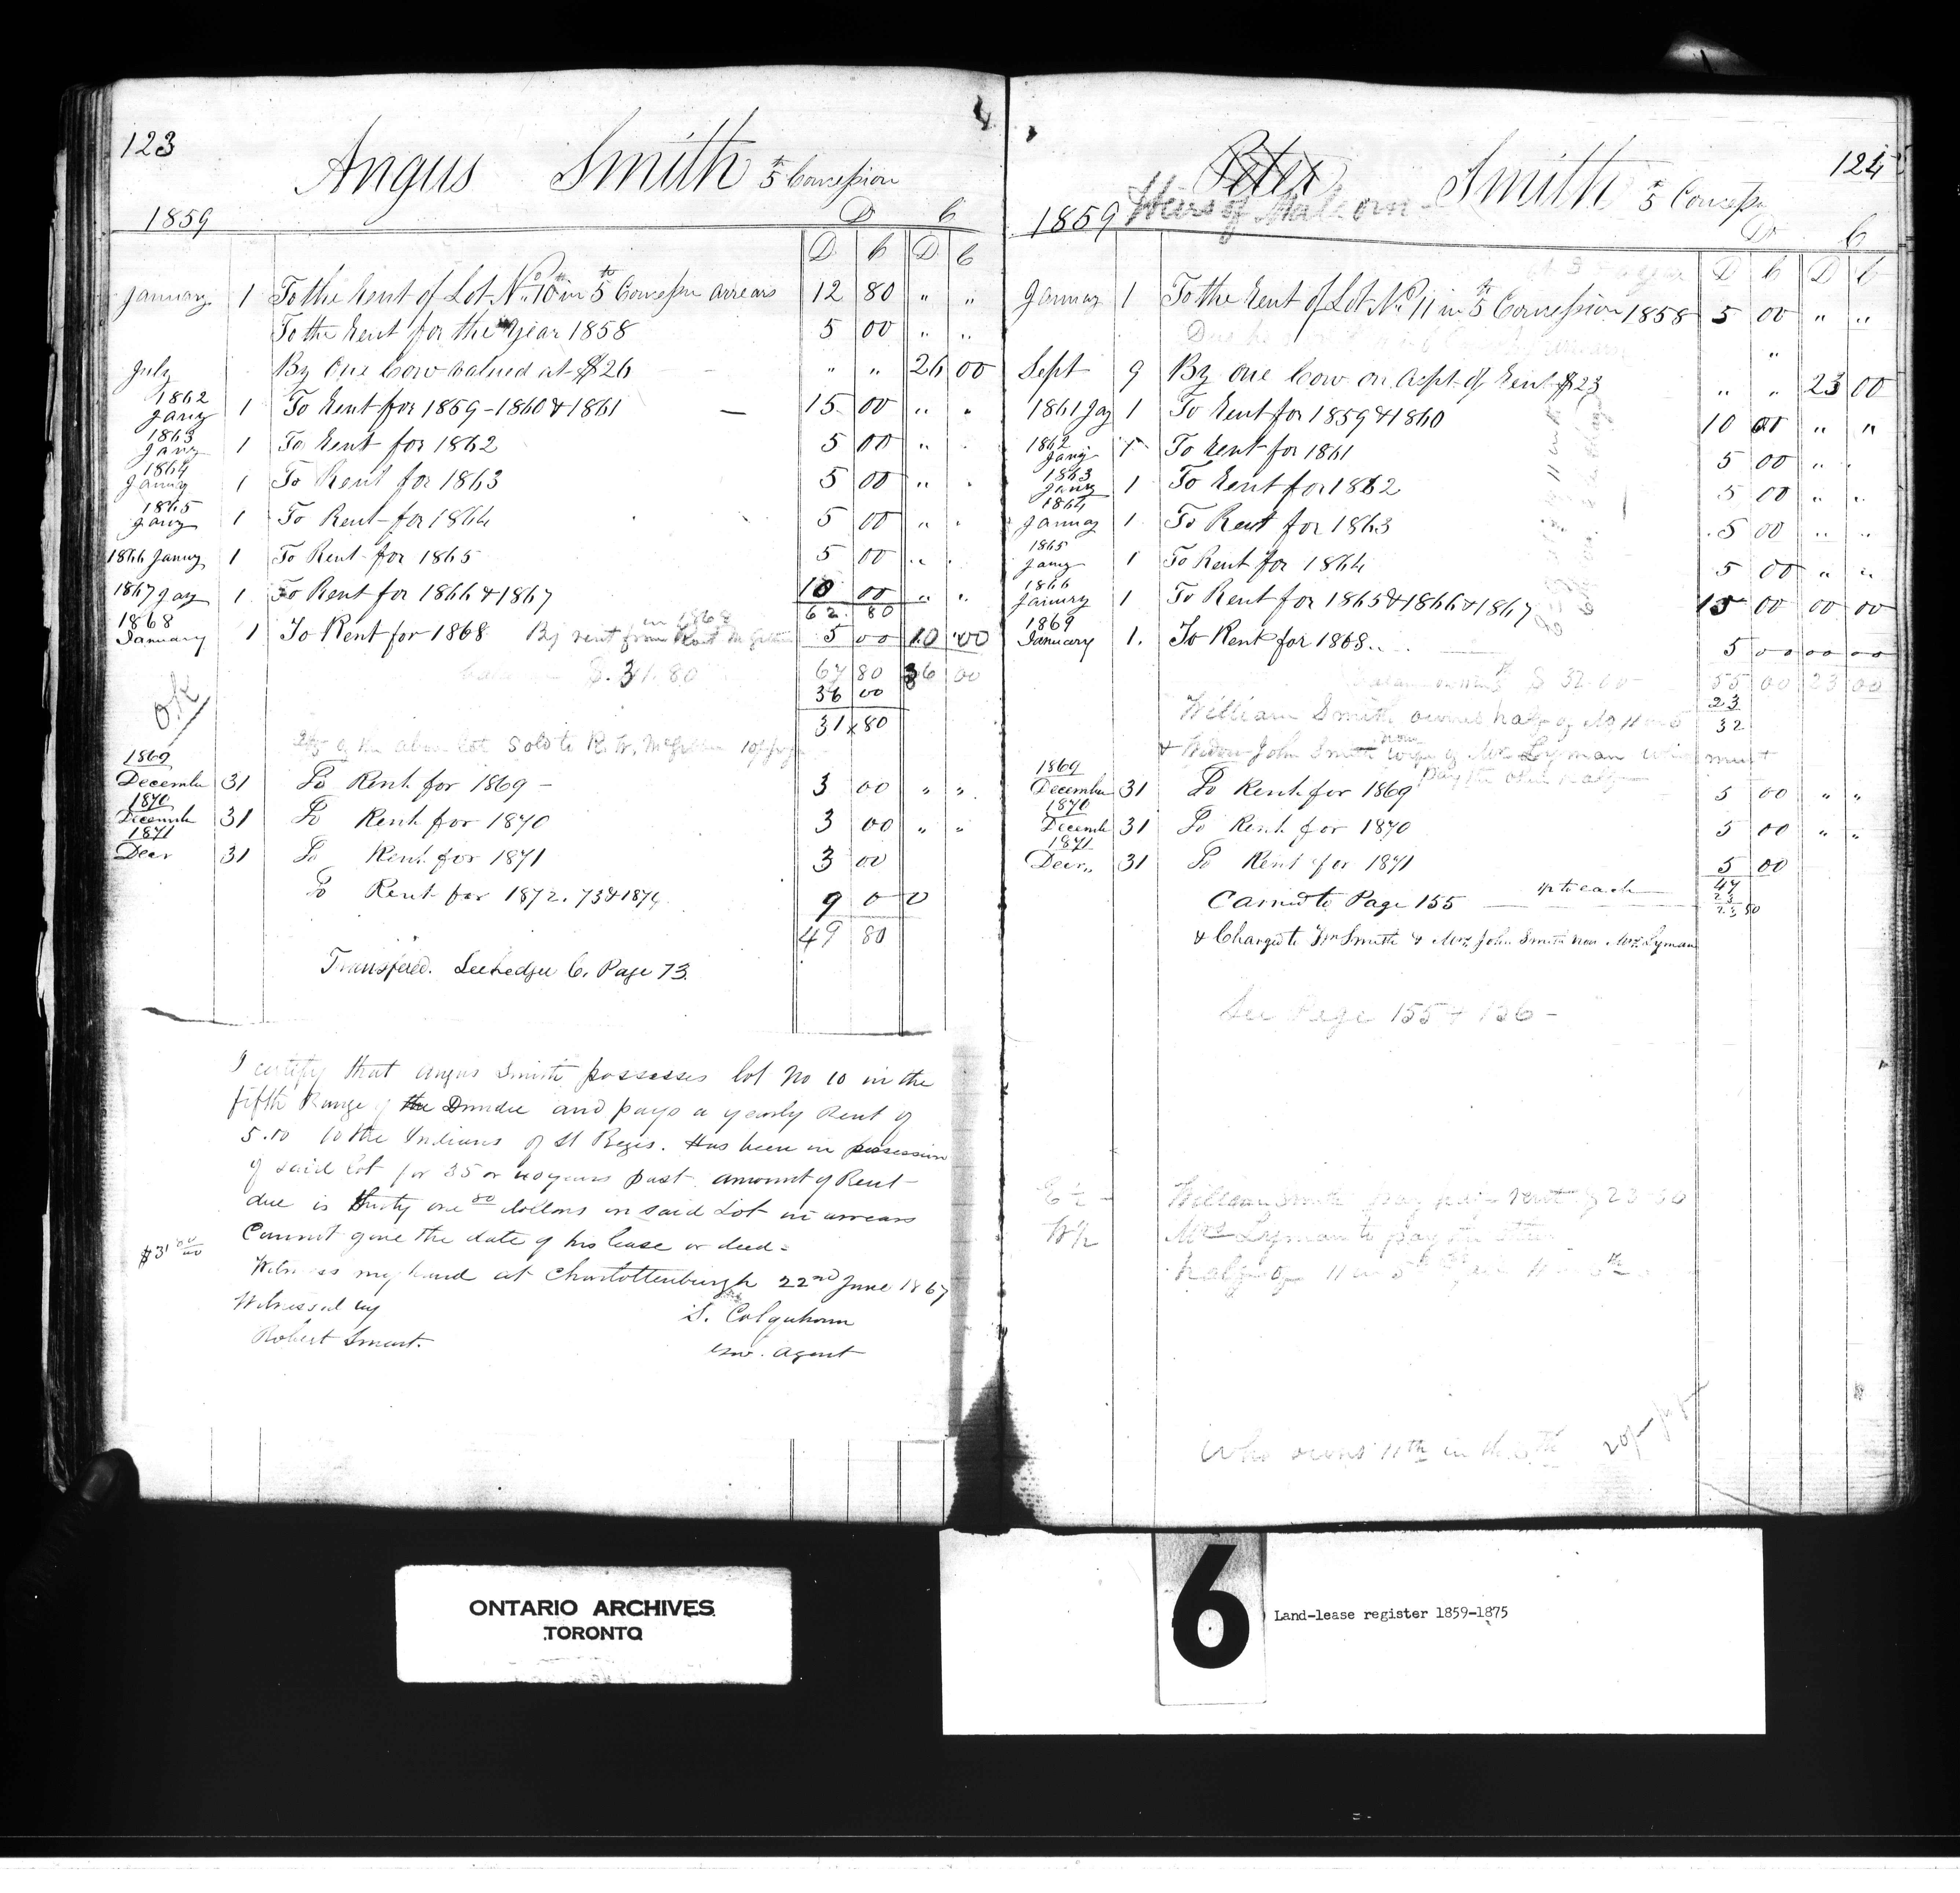 123
Angus Smith 5th Concession
1859 D C
D C D C
January 1 To the Rent of Lot No. 10th in 5th Concession arrears 12 80 " "
To the Rent for the year 1858 5 00 " "
July By One Cow valued at $26 " " 26 00
1862 Jany 1 To Rent for 1859-1860 & 1861 — 15 00 " "
1863 Jany 1 To Rent for 1862 5 00 " "
1864 Jany 1 To Rent for 1863 5 00 " "
1865 Jany 1 To Rent for 1864 5 00 " "
1866 Janry 1 To Rent for 1865 5 00 " "
1867 Jay 1 To Rent for 1866 & 1867 10 00 " "
62 80
in 1868
1868 January 1 To Rent for 1868 By rent from 5 00 10 00
$.31.80 67 80 36 00
36 00
OK
31 80
of the above lot sold to R. W. McGibbon
1869 December 31 To Rent for 1869 - 3 00 " "
1870 Decemb 31 To Rent for 1870 3 00 " "
1871 Decr 31 To Rent for 1871 3 00
To Rent for 1872. 73 & 1874 9 00
49 80
Transfered. See Ledger C. Page 73
I certify that Angus Smith possesses lot No 10 in the
fifth Range of the Dundee and pays a yearly Rent of
5.00 to the Indians of St Regis. Has been in possession
of said lot for 35 or 40 years past. amount of Rent
due is thirty one 80 dollars on said Lot in arrears
Cannot give the date of his lease or deed =
$31 80/00
Witness my hand at Charlottenburgh 22nd June 1867
Witnessed by S. Colquhoun
Robert Smart. Agent
124
Peter
Heirs of Malcom Smith 5 Concession
1859 Dr C
D C D C
January 1 To the Rent of Lot No 11 in 5th Concession 1858 5 00 " "
Sept 9 By One Cow on Acpt of Rent $23 " " 23 00
1861 Jay 1 To Rent for 1859 & 1860 10 00 " "
1862 Jany 1 To Rent for 1861 5 00 " "
1863 Jany 1 To Rent for 1862 5 00 " "
1864 Januay 1 To Rent for 1863 5 00 " "
1865 Jany 1 To Rent for 1864 5 00 " "
1866 January 1 To Rent for 1865 & 1866 & 1867 15 00 00 00
1869 January 1. To Rent for 1868 5 00 00 00
$ 32.00 55 00 23 00
23
William Smith owns half of No 11 in 5 32
& Widow John Smith now wife of Mr Lyman who must
pay the other half
1869 December 31 To Rent for 1869 5 00 " "
1870 Decemb 31 To Rent for 1870 5 00 " "
1871 Decr 31 To Rent for 1871 5 00
47
Carried to Page 155 1/2 to each
23 50
& Charged to Wm Smith & Mrs John Smith now Mrs Lyman
See Page 155 & 156 -
E 1/2 - William Smith pay rent 23 50
W 1/2 Mrs Lyman to pay the other
half of 11 in 5th
Who owns 11th in the 5th
ONTARIO ARCHIVES
TORONTO
6
Land-lease register 1859-1875